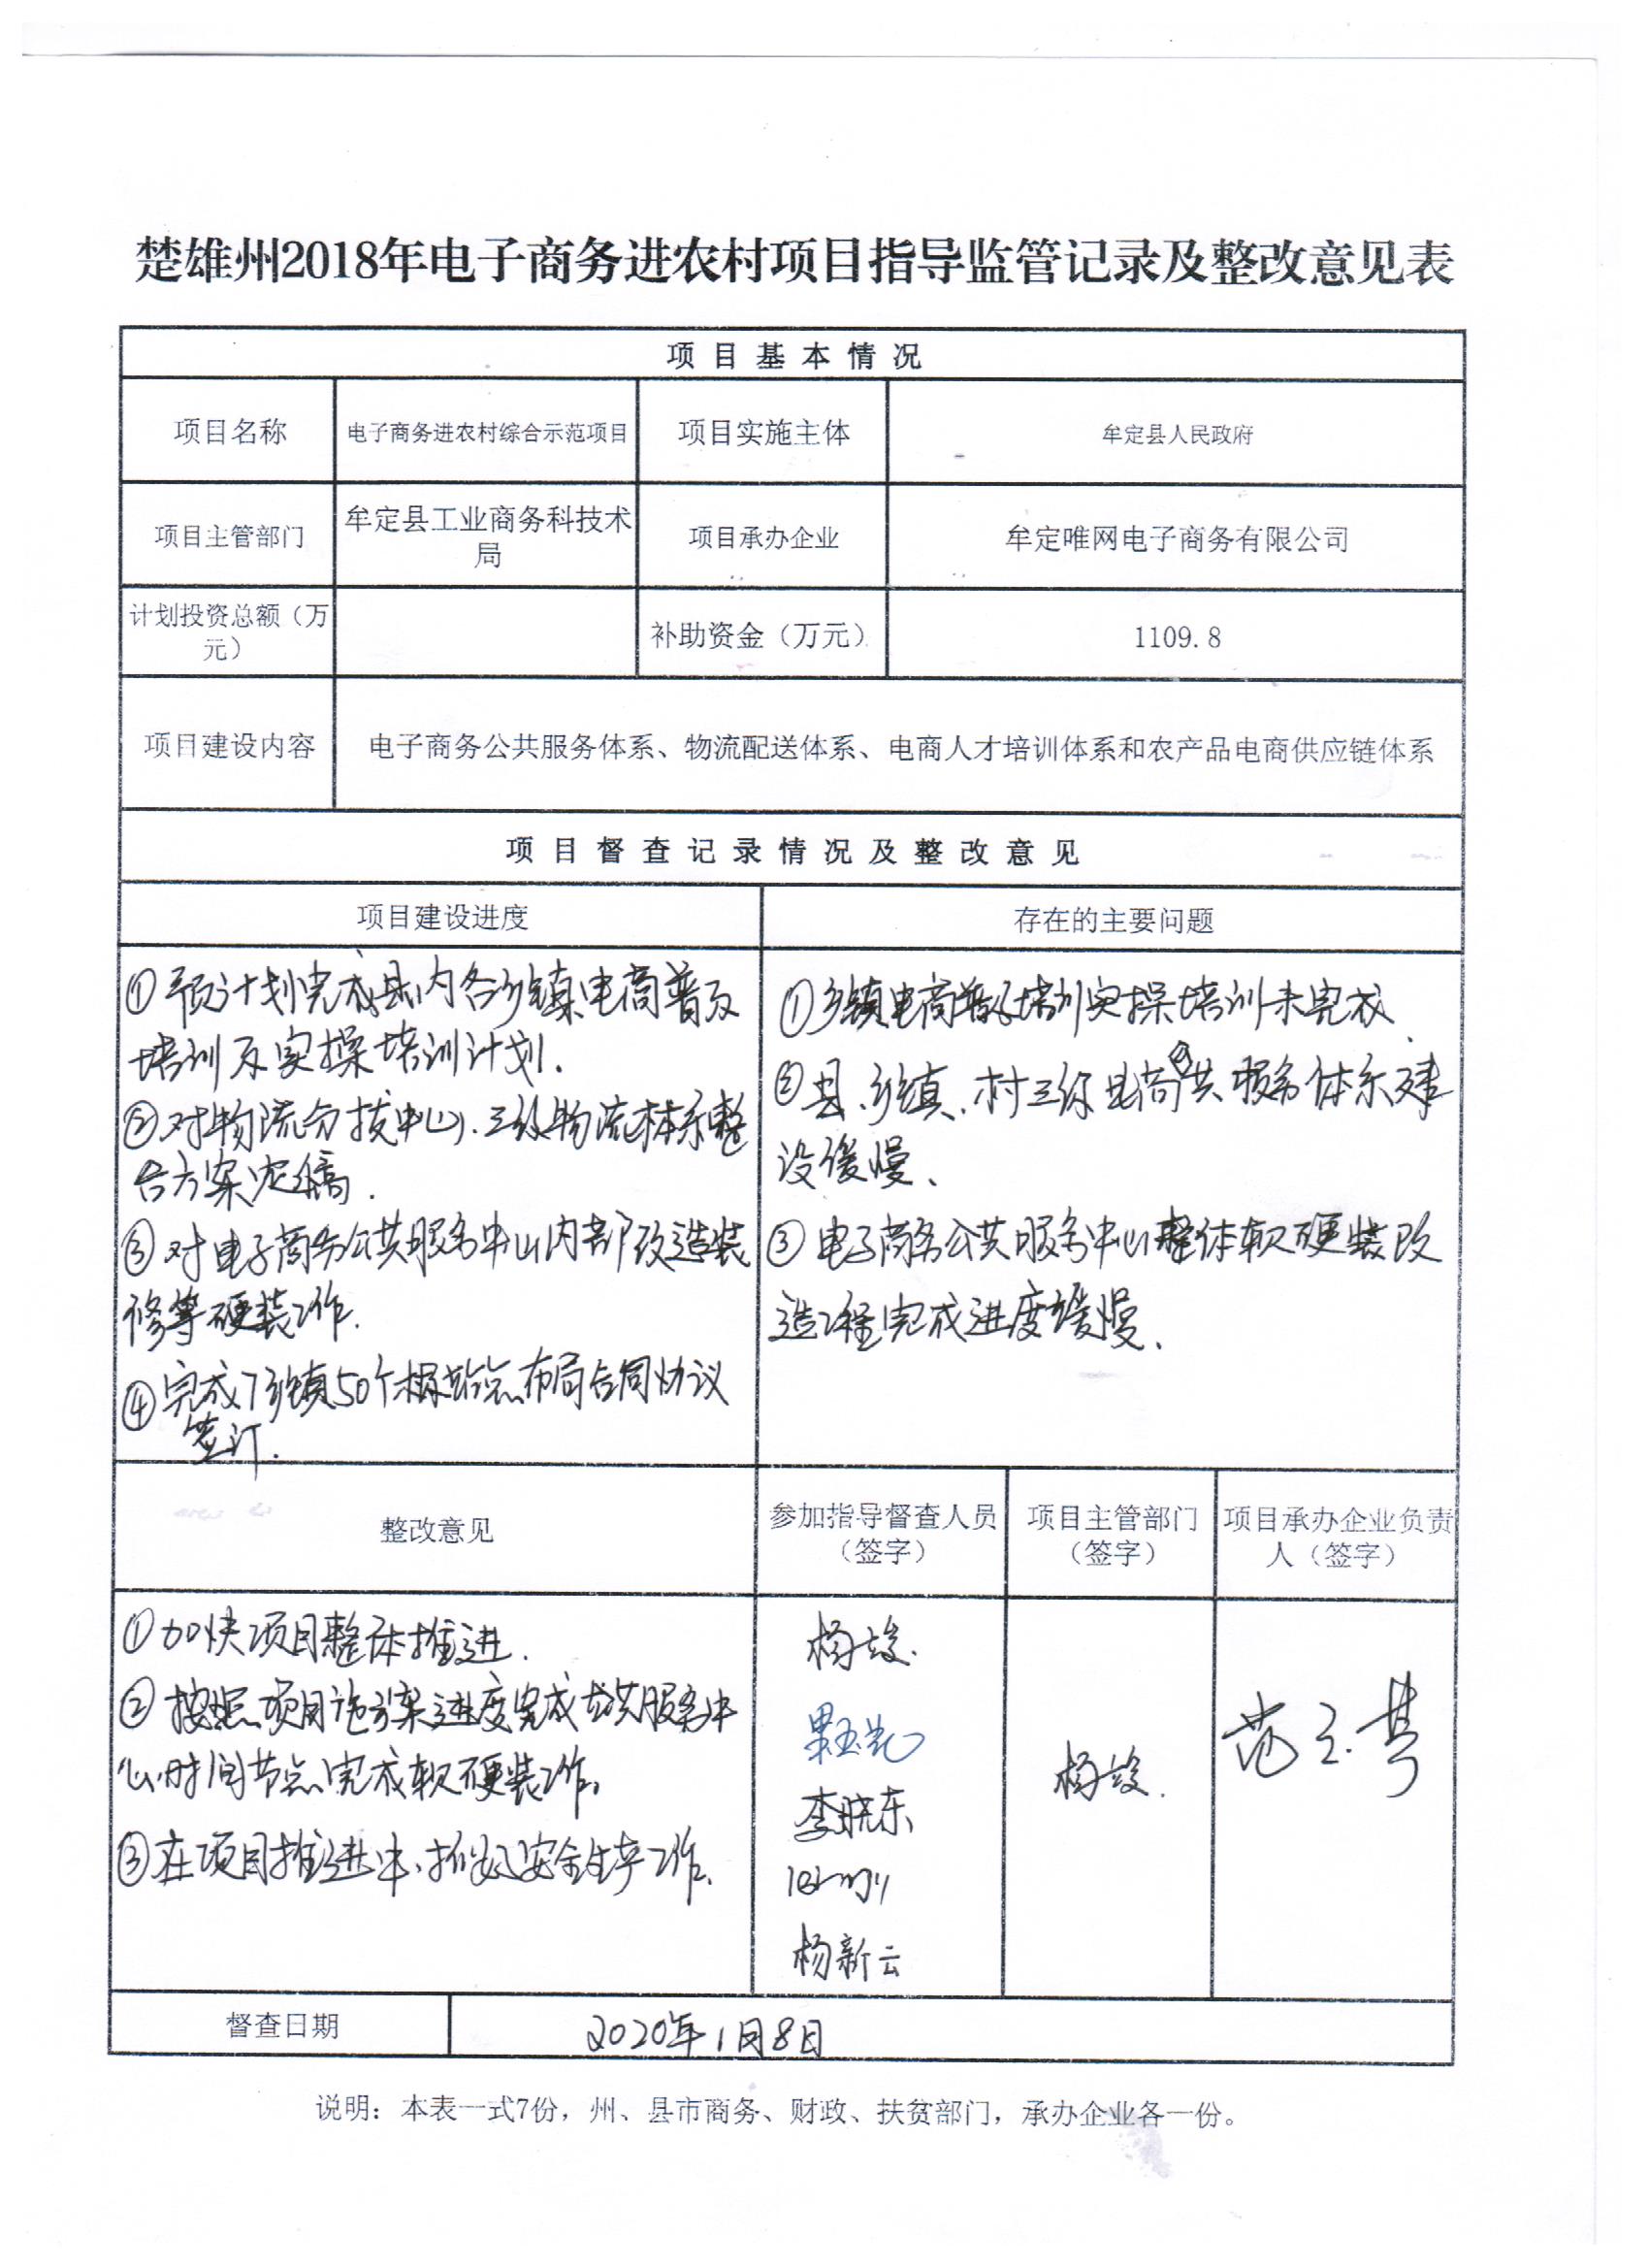 楚雄州2018年电子商务进农村项目指导监管记录及整改意见表
项目基本情况
项目名称
电子商务进农村综合示范项目
项目实施主体
牟定县人民政府
项目主管部门
牟定县工业商务科技术
局
项目承办企业
牟定唯网电子商务有限公司
计划投资总额（万
元）
补助资金（万元）
1109.8
项目建设内容
电子商务公共服务体系、物流配送体系、电商人才培训体系和农产品电商供应链体系
项目督查记录情况及整改意见
项目建设进度
存在的主要问题
①预计划完成县内各乡镇电商普及
培训及实操培训计划.
②对物流分拨中心、三级物流体系整
合方案定稿.
③对电子商务公共服务中心内部改造装
修等硬装工作.
④完成7乡镇50个村站点布局合同协议
签订.
①乡镇电商普及培训实操培训未完成、
②县、乡镇、村三级电商公共服务体系建
设缓慢、
③电子商务公共服务中心整体软硬装改
造工程完成进度缓慢、
整改意见
参加指导督查人员
（签字）
项目主管部门
（签字）
项目承办企业负责
人（签字）
①加快项目整体推进.
②按照项目实施方案进度完成公共服务中
心时间节点完成软硬装工作。
③在项目推进中、抓好安全生产工作.
李晓东
杨新云
督查日期
2020年1月8日
说明：本表一式7份，州、县市商务、财政、扶贫部门，承办企业各一份。